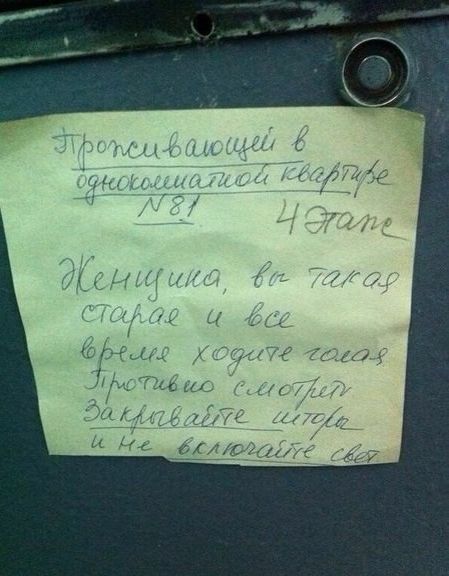 Проживающей в
однокомнатной квартире
№81 4 Этаж
Женщина, вы такая
старая и все
время ходите голая
Противно смотреть
Закрывайте шторы
и не включайте свет